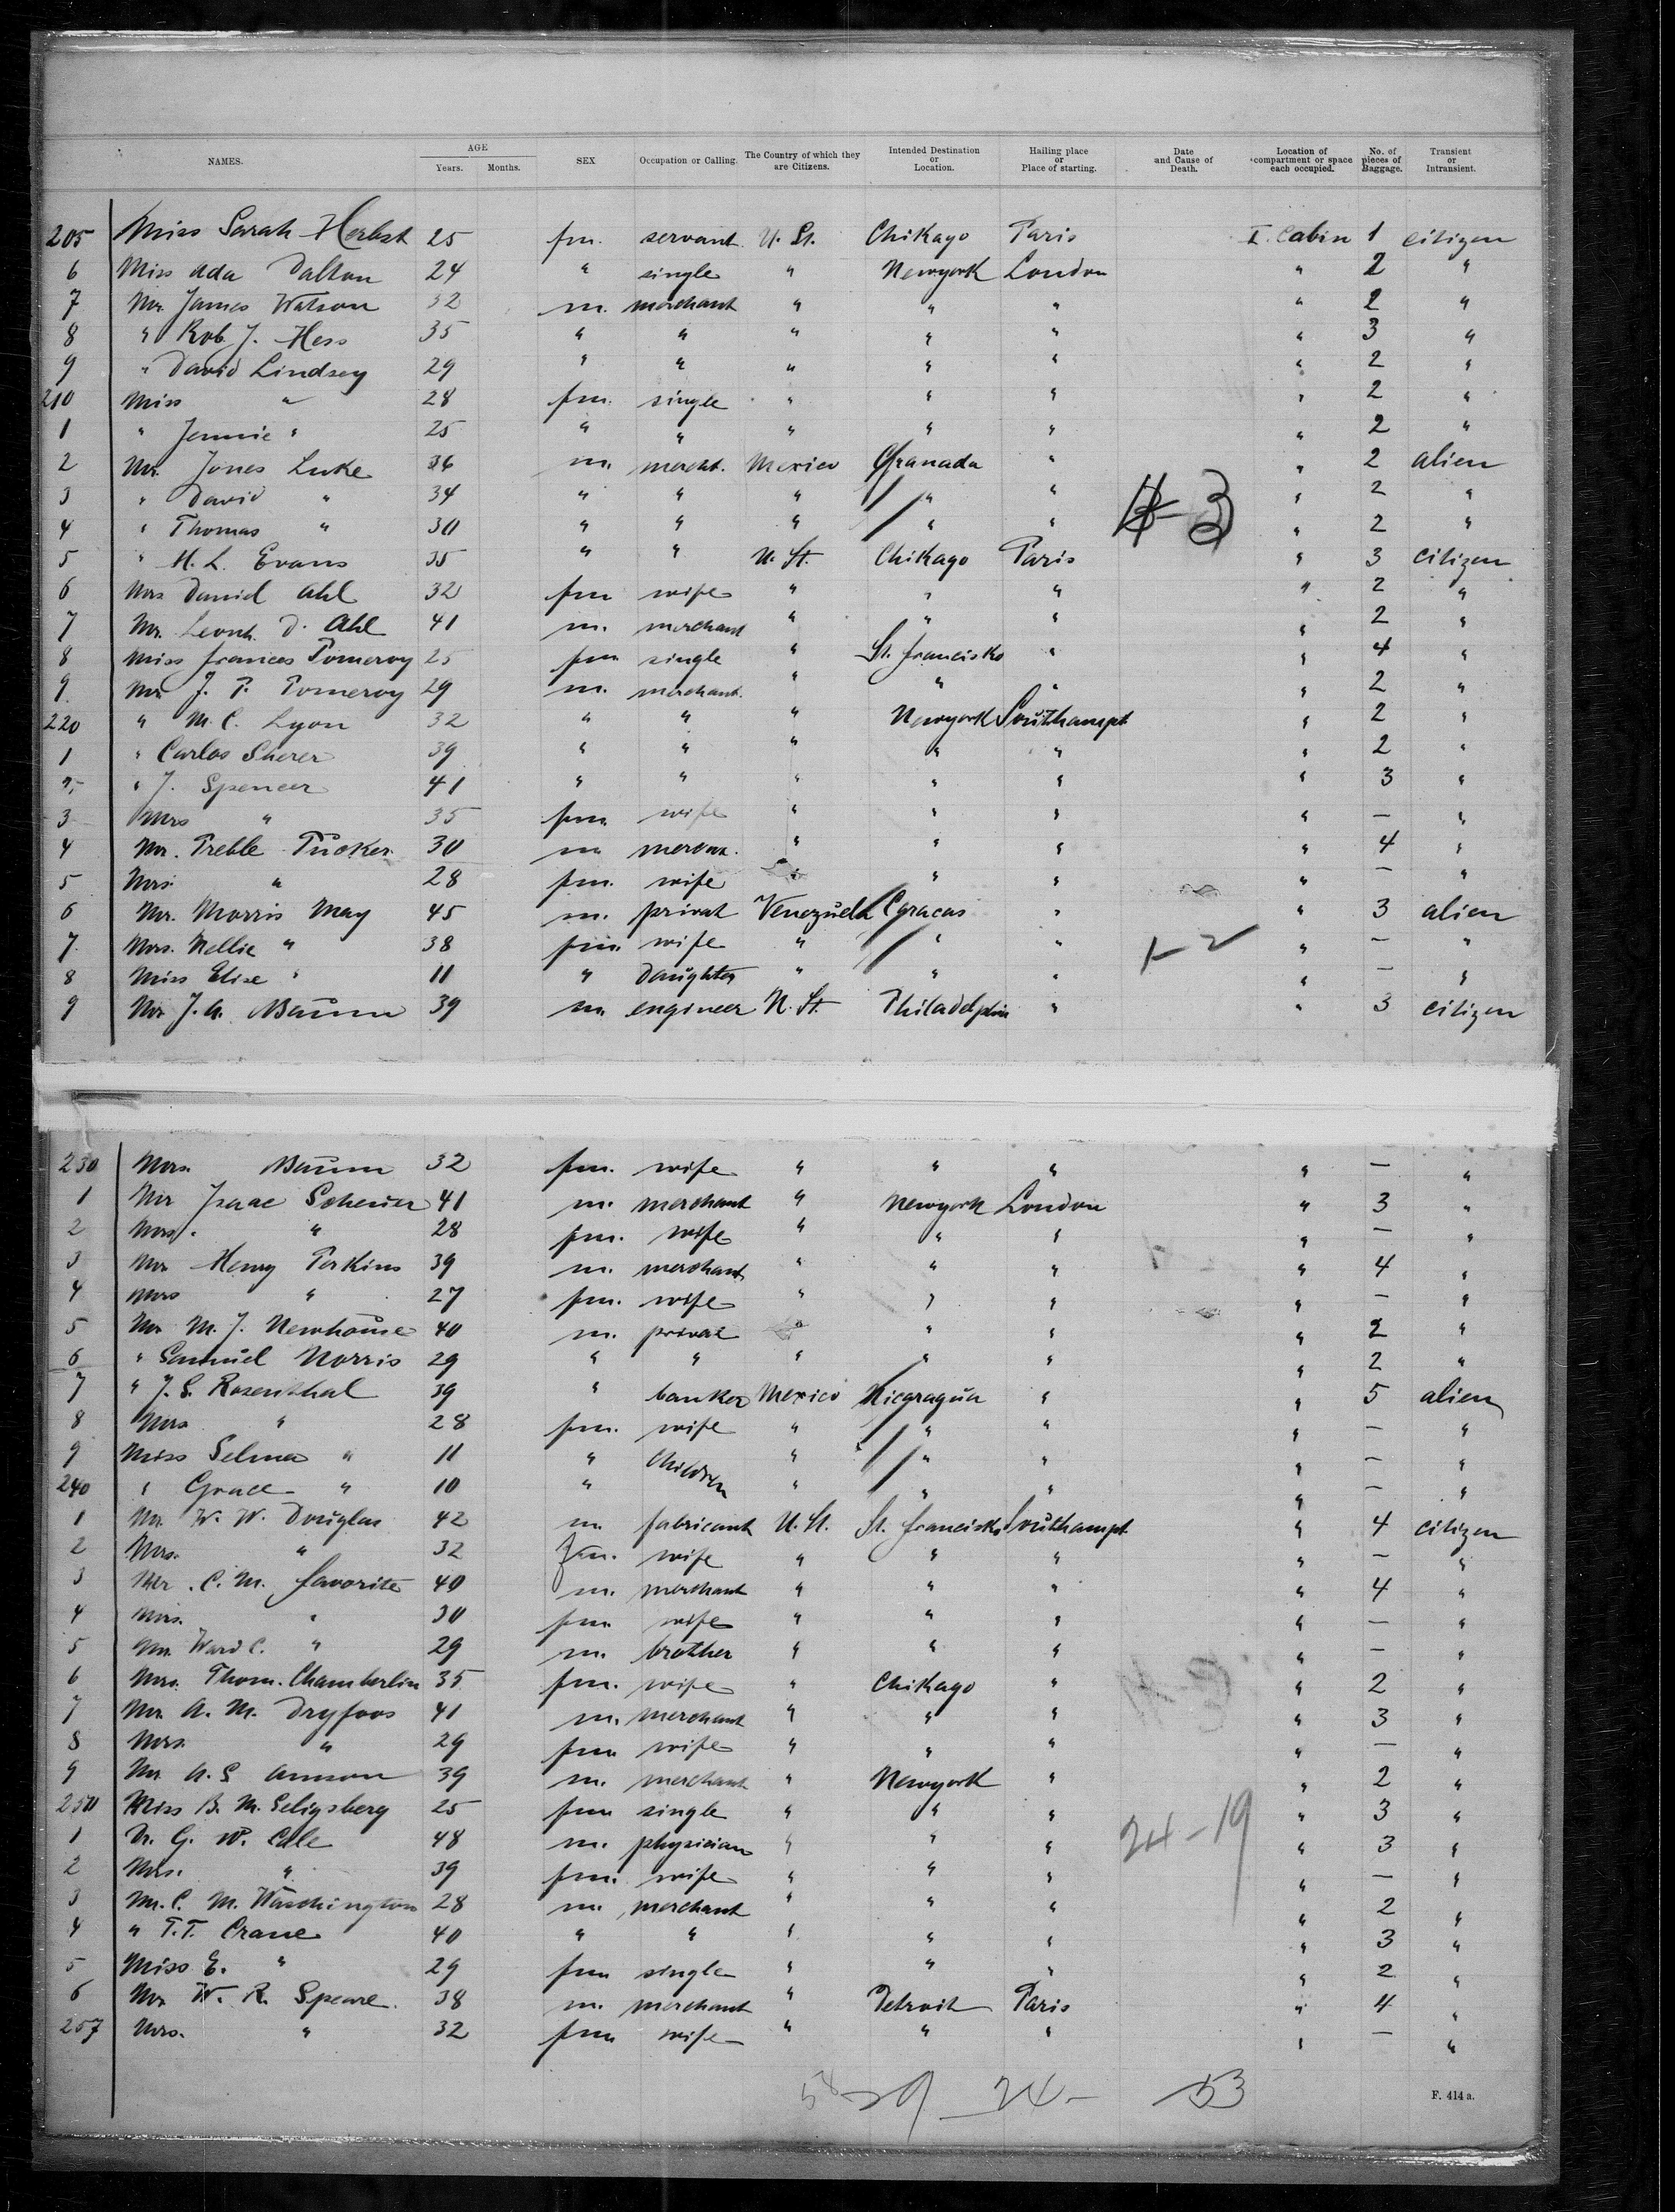 NAMES. AGE Years. Months. SEX Occupation or Calling. The Country of which they are Citizens. Intended Destination or Location. Hailing place or Place of starting. Date and Cause of Death. Location of compartment or space each occupied. No. of pieces of Baggage. Transient or Intransient.
205 Miss Sarah Herbst 25 fm. servant U. St. Chikago Paris I. Cabin 1 citizen
6 Miss Ada Dalton 24 " single " Newyork London " 2 "
7 Mr. James Watson 32 m. merchant " " " " 2 "
8 " Rob. J. Hess 35 " " " " " " 3 "
9 " David Lindsey 29 " " " " " " 2 "
210 Miss " 28 fm. single " " " " 2 "
1 " Jennie " 25 " " " " " " 2 "
2 Mr. Jones Luke 36 m. mercht. Mexico Granada " " 2 alien
3 " David " 34 " " " " " " 2 "
4 " Thomas " 30 " " " " " 3 " 2 "
5 " H. L. Evans 35 " " U. St. Chikago Paris " 3 citizen
6 Mrs Daniel Ahl 32 fm wife " " " " 2 "
7 Mr. Leonh. D. Ahl 41 m. merchant " " " " 2 "
8 Miss Frances Pomeroy 25 fm single " St. Francisko " " 4 "
9 Mr. J. P. Pomeroy 29 m. merchant. " " " " 2 "
220 " M. C. Lyon 32 " " " Newyork Southampt " 2 "
1 " Carlos Sherer 39 " " " " " " 2 "
2 " J. Spencer 41 " " " " " " 3 "
3 Mrs " 35 fm wife " " " " — "
4 Mr. Preble Tucker 30 m merchn. " " " " 4 "
5 Mrs. " 28 fm. wife " " " " — "
6 Mr. Morris May 45 m. privat Venezuela Caracas " " 3 alien
7 Mrs. Nellie " 38 fm. wife " " " " — "
8 Miss Elise " 11 " Daughter " " " " — "
9 Mr J. A. Baum 39 m engineer U. St. Philadelphia " " 3 citizen
230 Mrs. Baum 32 fm. wife " " " " — "
1 Mr Isaac Scheuer 41 m. merchant " Newyork London " 3 "
2 Mrs. " 28 fm. wife " " " " — "
3 Mr Henry Perkins 39 m. merchant " " " " 4 "
4 Mrs " 27 fm. wife " " " " — "
5 Mr M. J. Newhouse 40 m. privat " " " " 2 "
6 " Samuel Norris 29 " " " " " " 2 "
7 " J. S. Rosenthal 39 " banker Mexico Nicaragua " " 5 alien
8 Mrs " 28 fm. wife " " " " — "
9 Miss Selma " 11 " Children " " " " — "
240 " Grace " 10 " " " " " — "
1 Mr. W. W. Douglas 42 m. fabricant U. St. St. Francisko Southampt " 4 citizen
2 Mrs. " 32 fm. wife " " " " — "
3 Mr. C. M. Favorite 40 m. merchant " " " " 4 "
4 Mrs. " 30 fm wife " " " " — "
5 Mr. Ward C. " 29 m. brother " " " " — "
6 Mrs. Thom. Chamberlin 35 fm. wife " Chikago " " 2 "
7 Mr. A. M. Dryfoos 41 m. merchant " " " " 3 "
8 Mrs. " 29 fm wife " " " " — "
9 Mr A. S. Amson 39 m. merchant " Newyork " " 2 "
250 Miss B. M. Seligsberg 25 fm single " " " " 3 "
1 Dr. G. W. Cale 48 m. physician " " " 24-19 " 3 "
2 Mrs. " 39 fm. wife " " " " — "
3 Mr. C. M. Waschington 28 m. merchant " " " " 2 "
4 " T.T. Crane 40 " " " " " " 3 "
5 Miss E. " 29 fm single " " " " 2 "
6 Mr W. R. Speare. 38 m. merchant " Detroit Paris " 4 "
257 Mrs. " 32 fm wife " " " " — "
29 24- 53
F. 414 a.